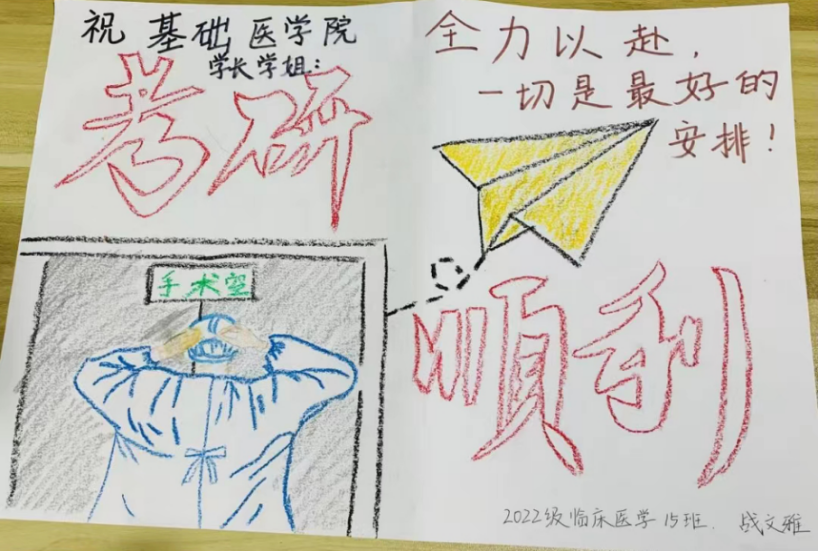 祝 基础医学院
学长学姐：
考研
全力以赴，
一切是最好的
安排！
手术室
顺利
2022级临床医学15班. 战文雅